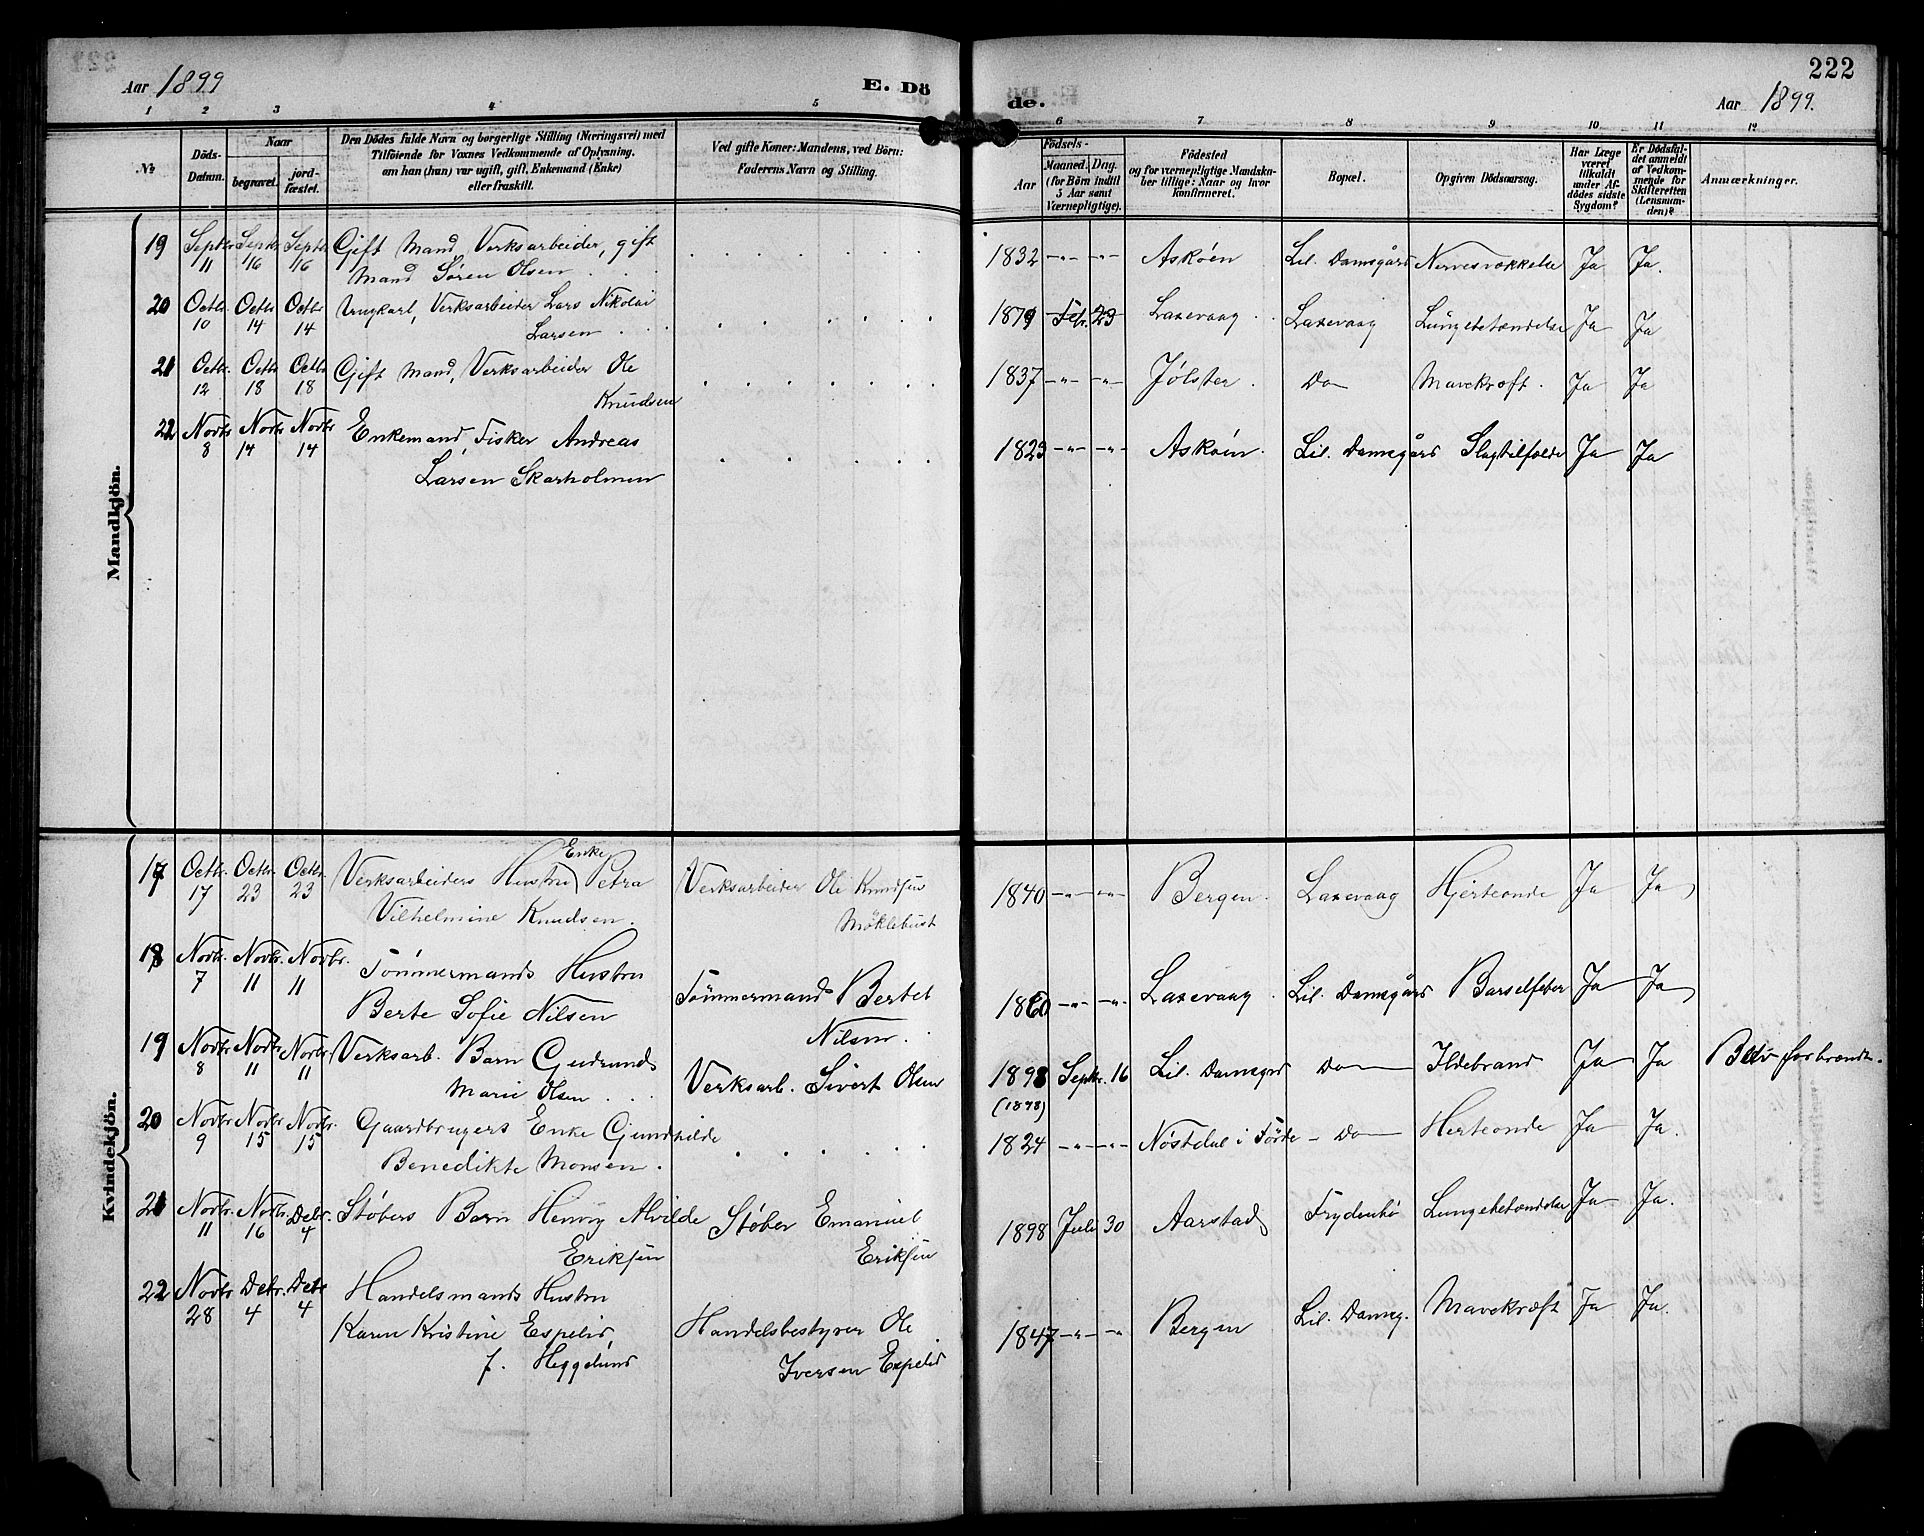 Aar 1899
E. Dö
de.
222
Aar 1899.
1 2 3 4 5
6 7 8 9 10 11 12
No
Döds-
Datum.
Naar
begravet.
jord-
fæstet.
Den Dödes fulde Navn og borgerlige Stilling (Næringsvei) med
Tilföiende for Voxnes Vedkommende af Oplysning,
om han (hun) var ugift, gift, Enkemand (Enke)
eller fraskilt.
Ved gifte Koner: Mandens, ved Börn:
Faderens Navn og Stilling.
Födsels-
Aar
Maaned. Dag.
(for Börn indtil
5 Aar samt
Værnepligtige).
Födested
og for værnepligtige Mandska-
ber tillige: Naar og hvor
konfirmeret.
Bopæl.
Opgiven Dödsaarsag.
Har Læge
været
tilkaldt
under Af-
dödes sidste
Sygdom?
Er Dödsfal-
det anmeldt
af Vedkom-
mende for
Skifteretten
(Lensman-
den)?
Anmærkninger.
Mandkjön.
19 Septbr. 11 Septbr. 16 Septbr. 16 Gift Mand, Verksarbeider, gift
Mand Sören Olsen
1832 -"- -"- Askøen Lil. Damsgård Nervesvækkelse Ja Ja.
20 Octbr. 10 Octbr. 14 Octbr. 14 Ungkarl, Verksarbeider Lars Nikolai
Larsen
1879 Febr. 23 Laxevaag Laxevaag Lungebetændelse Ja Ja
21 Octbr. 12 Octbr 18 Octbr 18 Gift Mand, Verksarbeider Ole
Knudsen
1837 -"- -"- Jølster. Do Mavekræft. Ja Ja
22 Novbr 8 Novbr 14 Novbr 14 Enkemand, Fisker Andreas
Larsen Skarholmen
1823 -"- -"- Askøen. Lil. Damsgård Slagtilfælde Ja Ja
Kvindekjön.
17 Octbr. 17 Octbr. 23 Octbr 23 Verksarbeiders Hustru Enke Petra
Vilhelmine Knudsen.
Verksarbeider Ole Knudsen
Möklebust
1840 -"- -"- Bergen. Laxevaag Hjerteonde Ja Ja
18 Novbr. 7 Novbr. 11 Novbr. 11 Tømmermands Hustru
Berte Sofie Nilsen
Tømmermand Bertel
Nilsen.
1860 -"- -"- Laxevaag. Lil. Damsgård Barselfeber Ja Ja
19 Novbr 8 Novbr 11 Novbr 11 Verksarb. Barn Gudrund
Marie Olsen
Verksarb. Sivert Olsen
1898 Septbr. 16 Lil. Damsgrd Do Ildebrand Ja Ja Blev forbrændt.
(1898)
20 Novbr 9 Novbr 15 Novbr 15 Gaardbrugers Enke Gundhilde
Benedikte Monsen.
1824 -"- -"- Nøstdal i Førde Do Herteonde Ja Ja.
21 Novbr. 11 Novbr. 16 Debr. 4 Støbers Barn Henny Alvilde
Eriksen
Støber Emanuel
Eriksen
1898 Juli 30 Aarstad Frydenbø Lungebetændelse Ja Ja.
22 Novbr. 28 Debr. 4 Debr 4 Handelsmands Hustru
Karen Kristine Espelid,
f. Heggelund
Handelsbestyrer Ole
Iversen Espelid
1847 -"- -"- Bergen Lil. Damsg. Mavekræft Ja Ja.